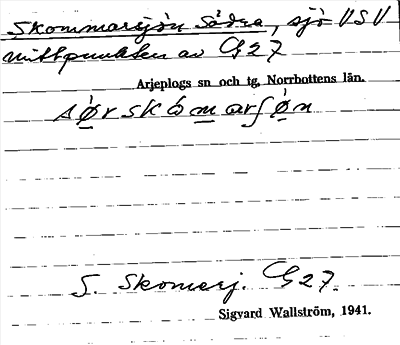 Skommarsjön Södra, sjö VSV
mittpunkten av G27
Arjeplogs sn och tg, Norrbottens län.
sø̀r skòmarʃø̀n
S. Skomarj. G27.
Sigvard Wallström, 1941.